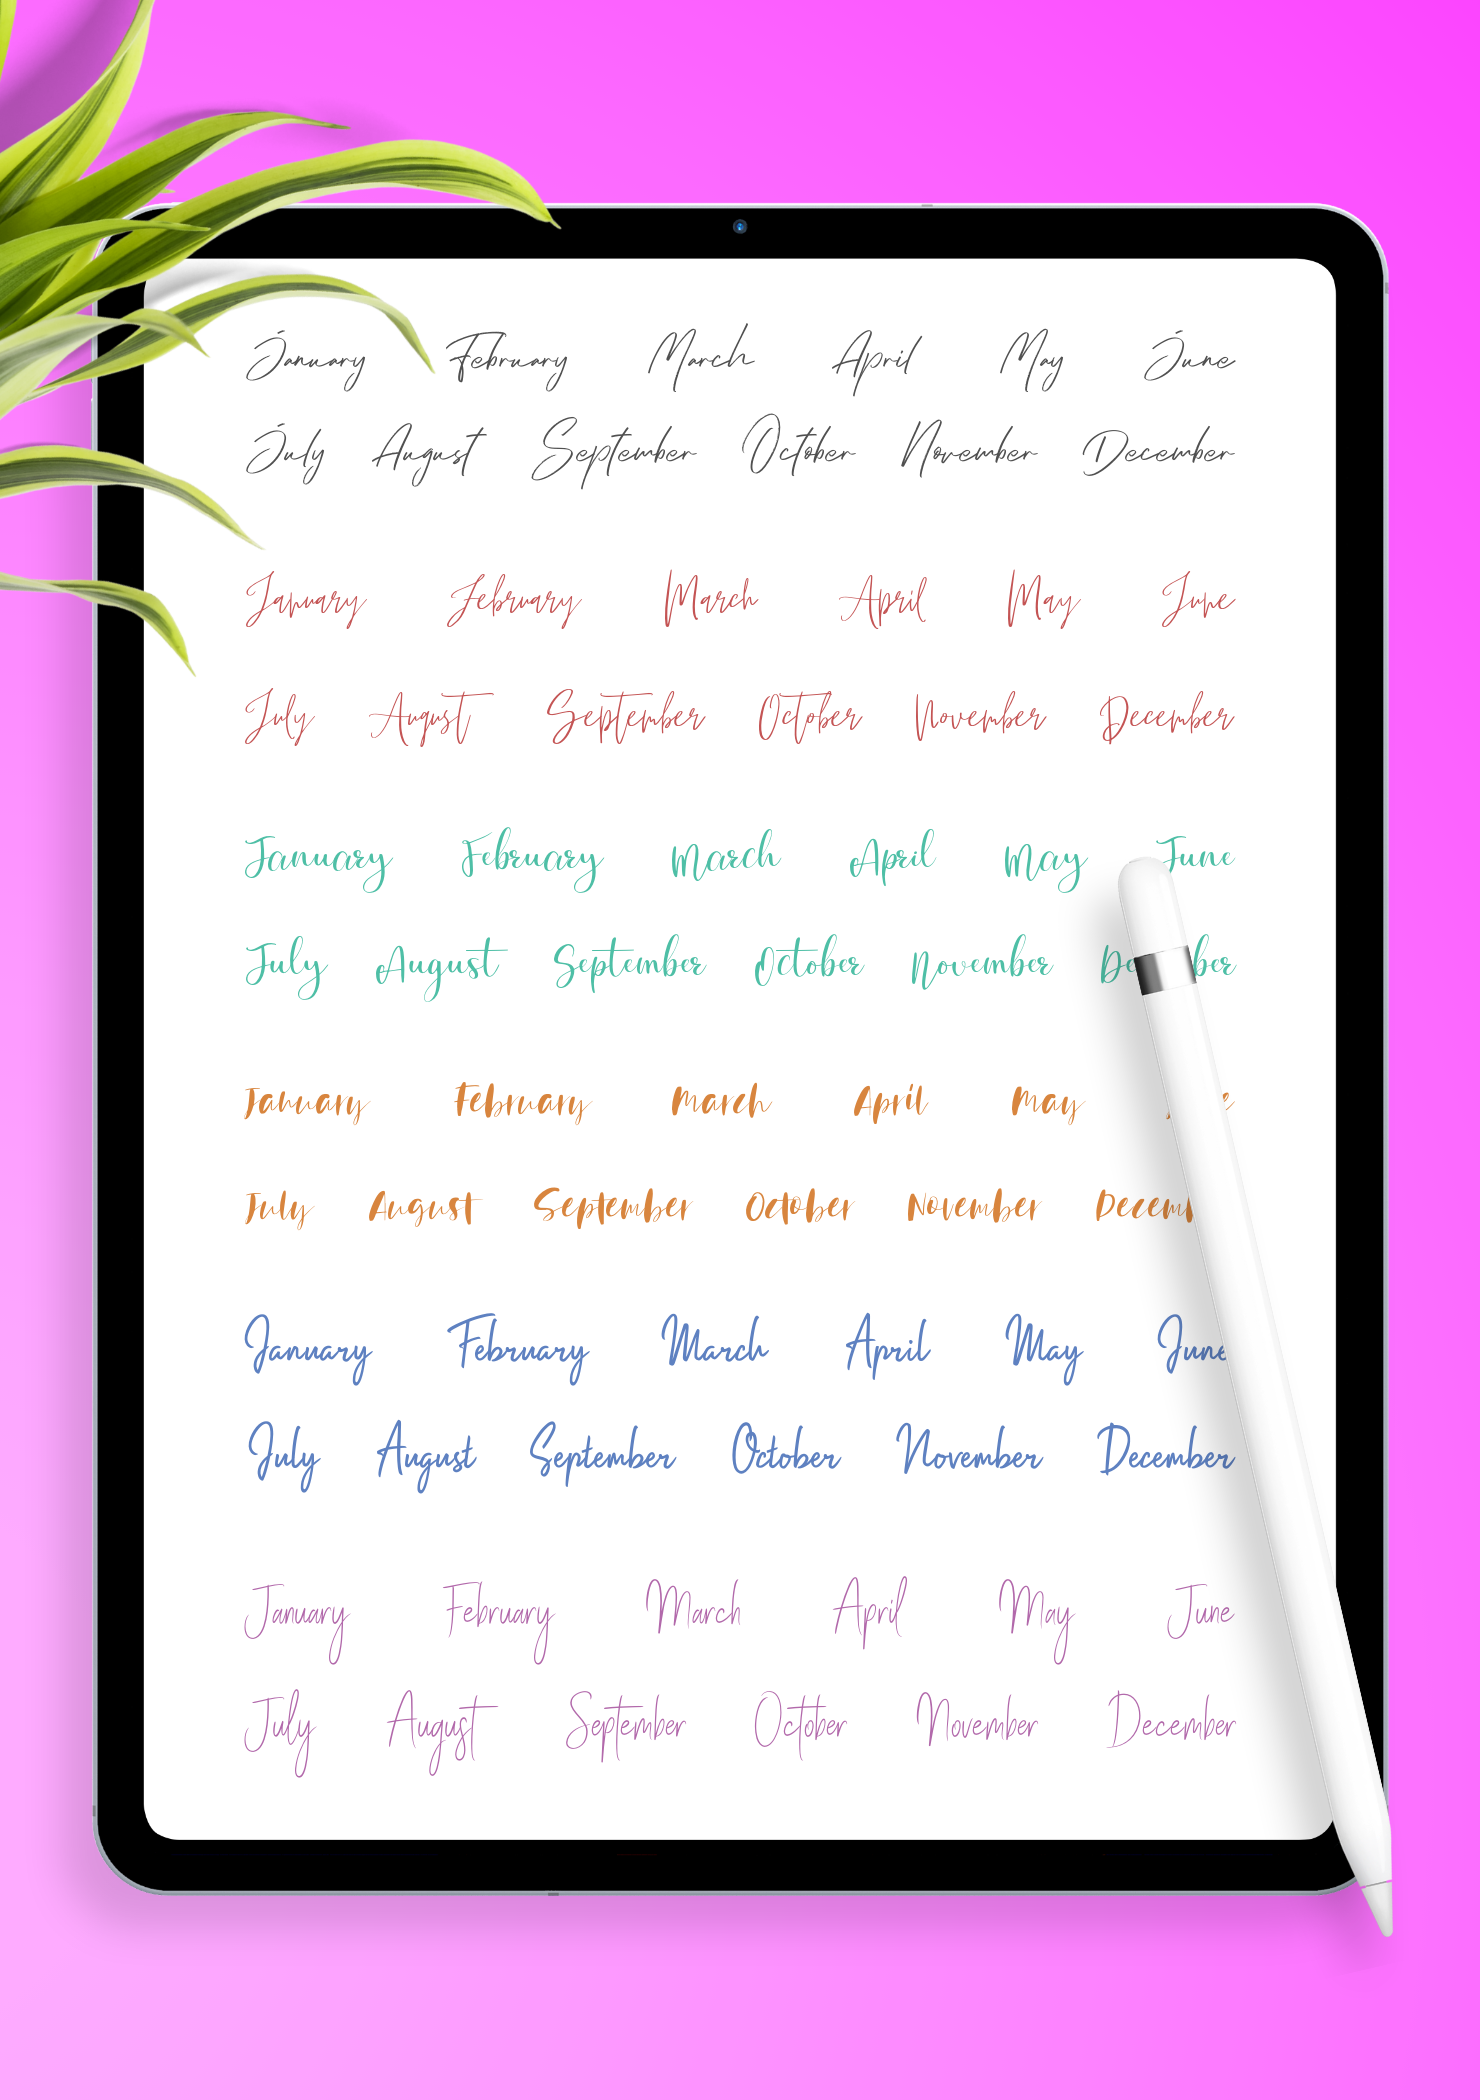 January February March April May June
July August September October November December
January February March April May June
July August September October November December
January February March April May June
July August September October November De ber
January February March April May
July August September October November Decem
January February March April May June
July August September October November December
January February March April May June
July August September October November December